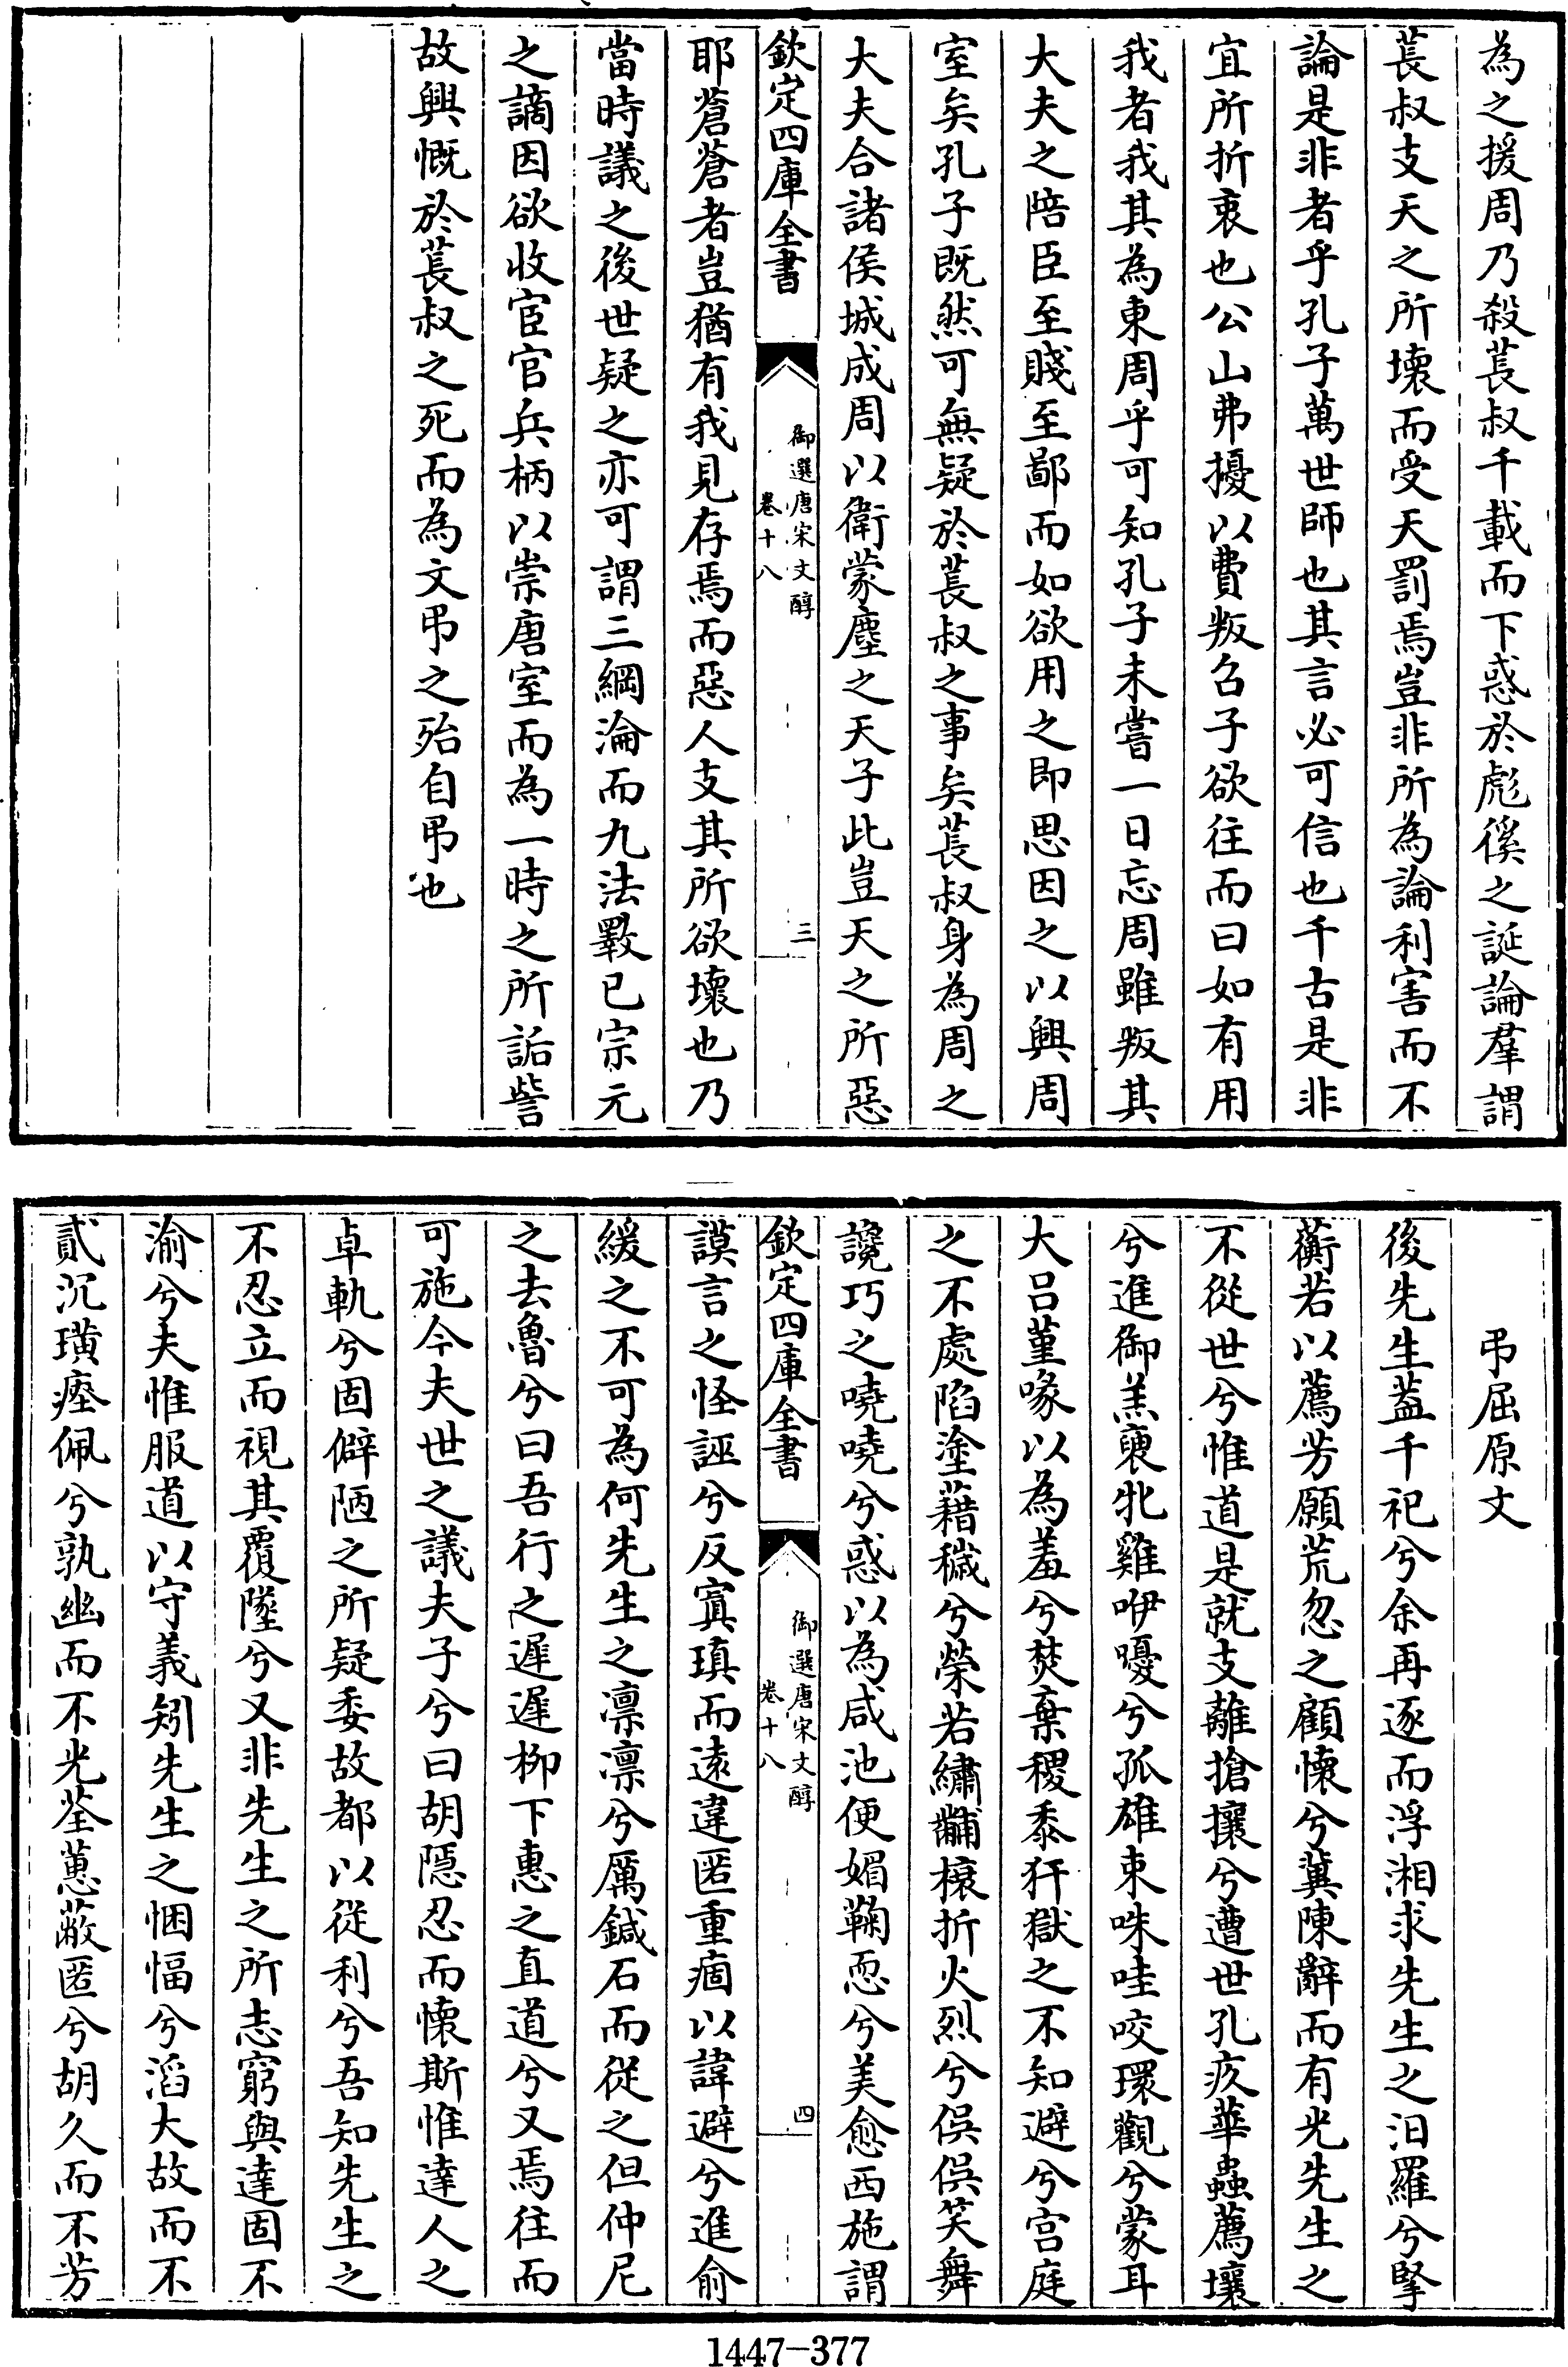 為之援周乃殺萇叔千載而下惑於彪徯之誕論羣謂
萇叔支天之所壞而受天罰焉豈非所為論利害而不
論是非者乎孔子萬世師也其言必可信也千古是非
宜所折衷也公山弗擾以費叛召子欲往而曰如有用
我者我其為東周乎可知孔子未嘗一日忘周雖叛其
大夫之陪臣至賤至鄙而如欲用之即思因之以興周
室矣孔子既然可無疑於萇叔之事矣萇叔身為周之
大夫合諸侯城成周以衛蒙塵之天子此豈天之所惡
欽定四庫全書
御選唐宋文醇
卷十八
三
耶蒼蒼者豈猶有我見存焉而惡人支其所欲壞也乃
當時議之後世疑之亦可謂三綱淪而九法斁已宗元
之謫因欲收宦官兵柄以崇唐室而為一時之所詬訾
故興慨於萇叔之死而為文弔之殆自弔也
弔屈原文
後先生蓋千祀兮余再逐而浮湘求先生之汨羅兮擥
蘅若以薦芳願荒忽之顧懷兮冀陳辭而有光先生之
不從世兮惟道是就支離搶攘兮遭世孔疚華蟲薦壤
兮進御羔裒牝雞咿嚘兮孤雄束咮哇咬環觀兮蒙耳
大呂堇喙以為羞兮焚棄稷黍犴獄之不知避兮宫庭
之不處陷塗藉穢兮榮若繡黼榱折火烈兮俣俣笑舞
讒巧之嘵嘵兮惑以為咸池便媚鞠恧兮美愈西施謂
欽定四庫全書
御選唐宋文醇
卷十八
四
謨言之怪誣兮反寘瑱而遠違匿重痼以諱避兮進俞
緩之不可為何先生之凛凛兮厲鍼石而從之但仲尼
之去魯兮曰吾行之遲遲柳下惠之直道兮又焉往而
可施今夫世之議夫子兮曰胡隱忍而懷斯惟達人之
卓軌兮固僻陋之所疑委故都以從利兮吾知先生之
不忍立而視其覆墜兮又非先生之所志窮與達固不
渝兮夫惟服道以守義矧先生之悃愊兮滔大故而不
貳沉璜瘞佩兮孰幽而不光荃蕙蔽匿兮胡久而不芳
1447-377